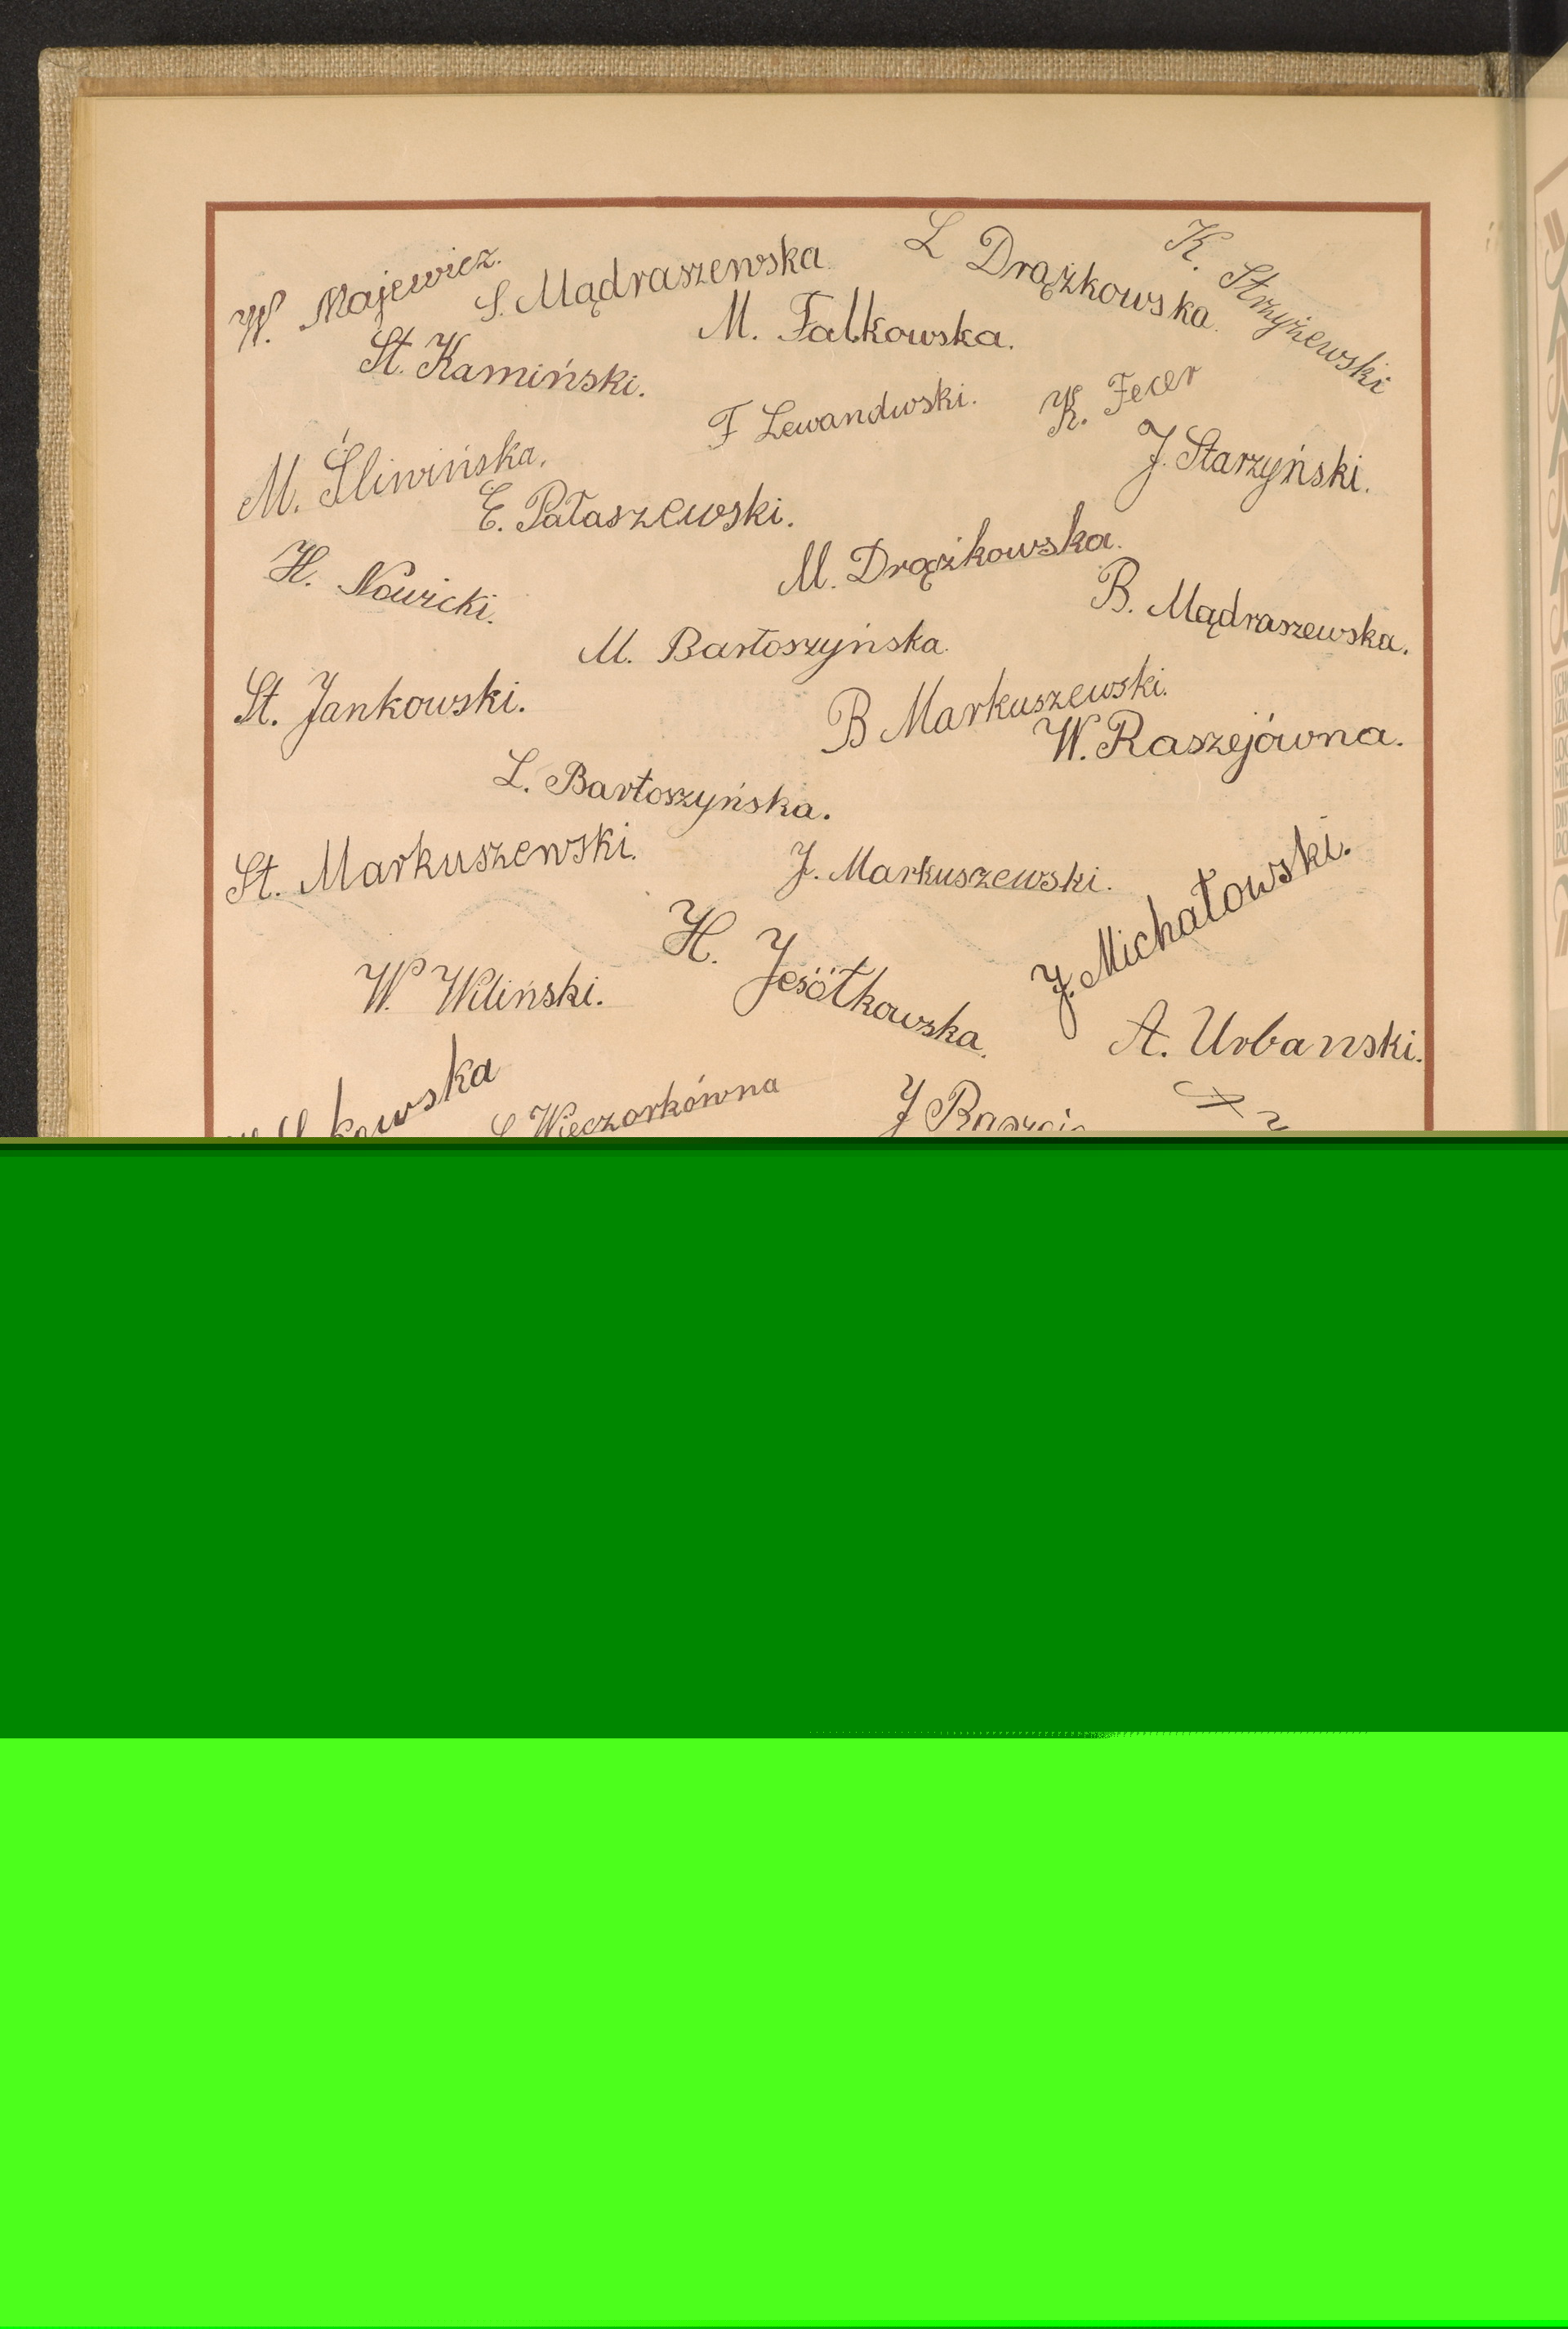 W. Majewicz.
S. Mądraszewska
L Drążkowska.
K. Strzyżewski
St. Kamiński.
M. Falkowska.
F Lewandwski.
K. Fecer
J. Starzyński.
M. Śliwińska.
E. Pałaszewski.
H. Nowicki.
M. Drążkowska.
B. Mądraszewska.
M. Bartoszyńska.
St. Jankowski.
B Markuszewski.
W. Raszejówna.
L. Bartoszyńska.
St. Markuszewski.
J. Markuszewski.
J. Michałowski.
W. Wiliński.
H. Jesótkowska.
A. Urbanski.
kowska
S Wieczorkówna
J